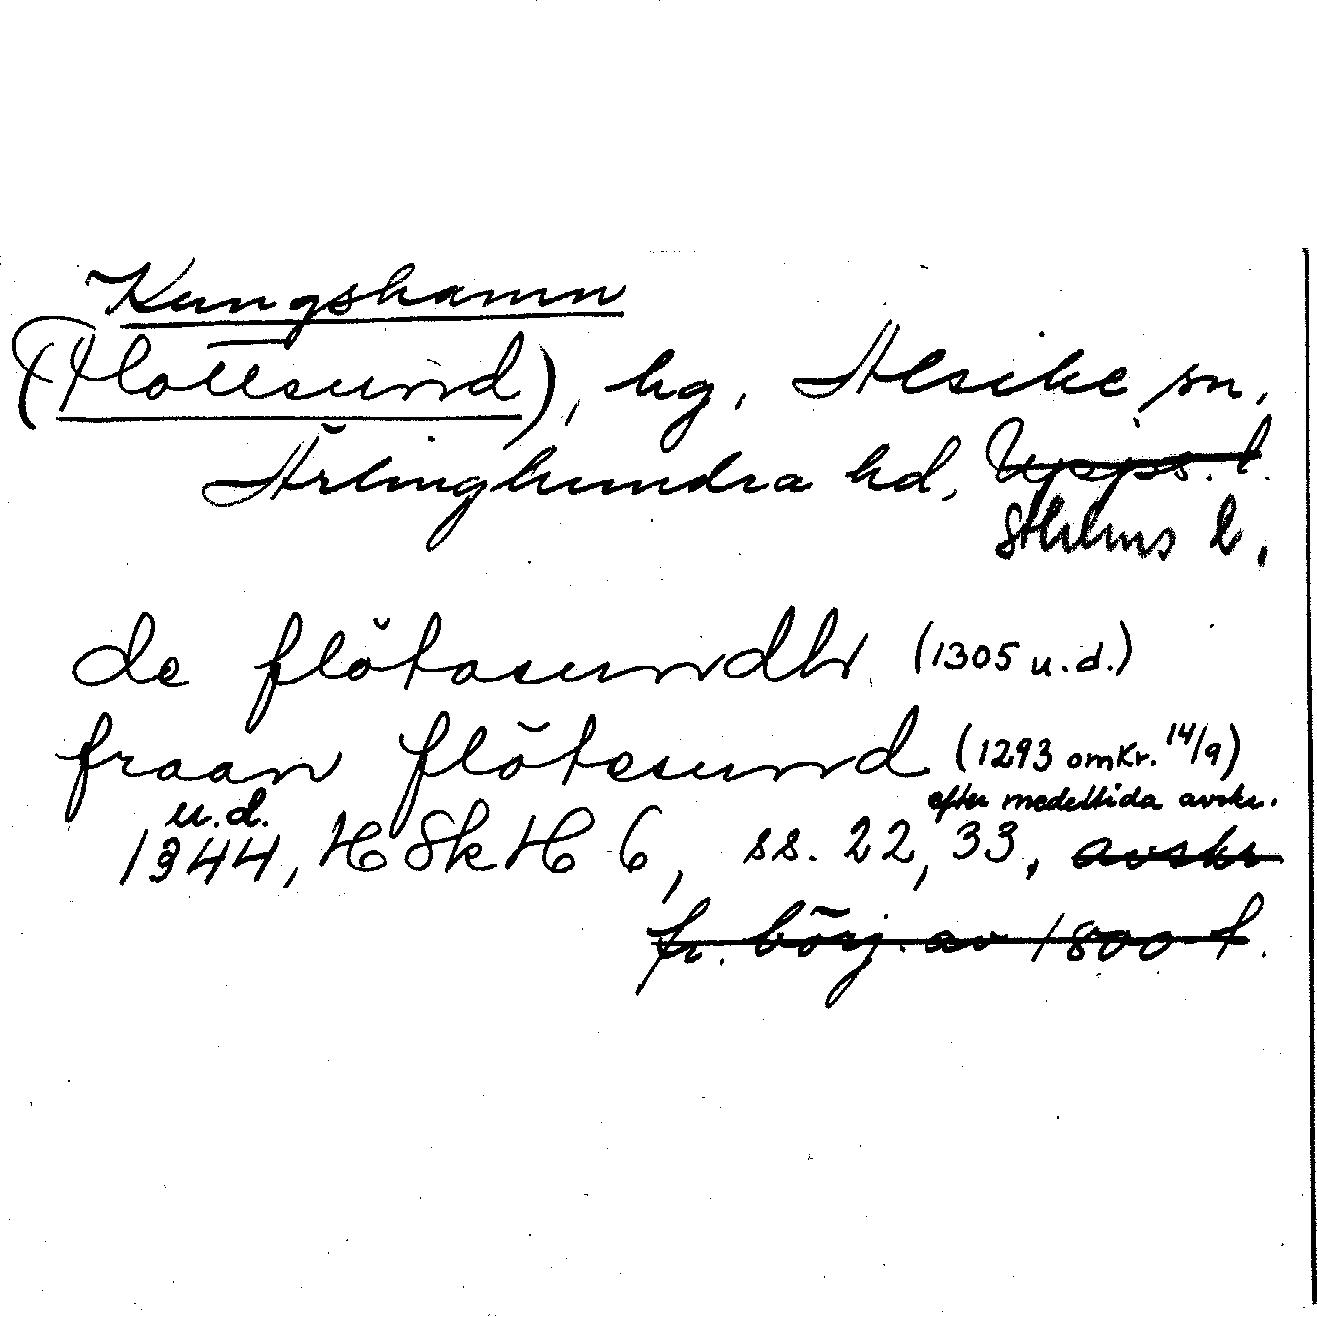 Kungshamn
(Flottsund), hg, Alsike sn,
Ärlinghundra hd, Upps. l.
Sthlms l.
de flötasundh (1305 u.d.)
fraan flötesund (1293 omkr. 14/9)
u.d. efter medeltida avskr.
1944, HSkH 6, ss. 22, 33, avskr
fr. börj. av 1800-t.